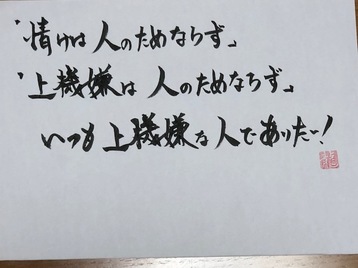 「情けは人のためならず」
「上機嫌は人のためならず」
いつも上機嫌な人でありたい!